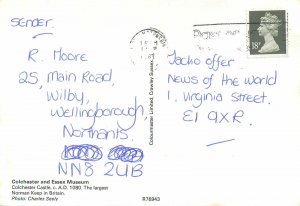 Sender.
R. Moore
25, Main Road,
Wilby,
Wellingborough,
Northants
NN8 2UB
Jacko offer
News of the World
1, Virginia Street,
E1 9XR.
18P
Colourmaster Limited, Crawley, Sussex
Colchester and Essex Museum
Colchester Castle, c. A.D. 1080. The largest
Norman Keep in Britain.
Photo: Charles Seely
R76943